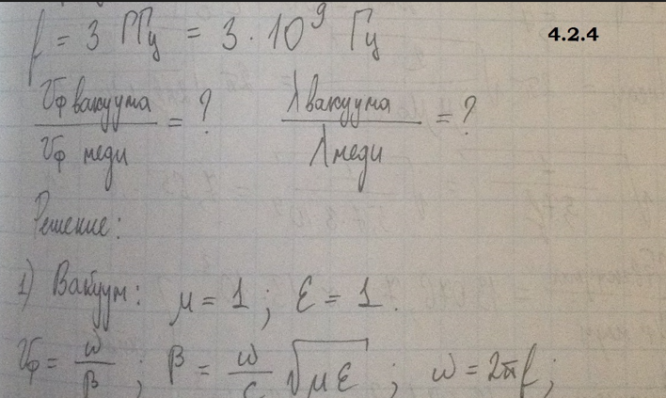 f = 3 ГГц = 3 · 10⁹ Гц
4.2.4
Vф вакуума / Vф меди = ? λ вакуума / λ меди = ?
Решение:
1) Вакуум: μ = 1 ; ε = 1.
Vф = ω / β ; β = ω / c √με ; ω = 2πf ;